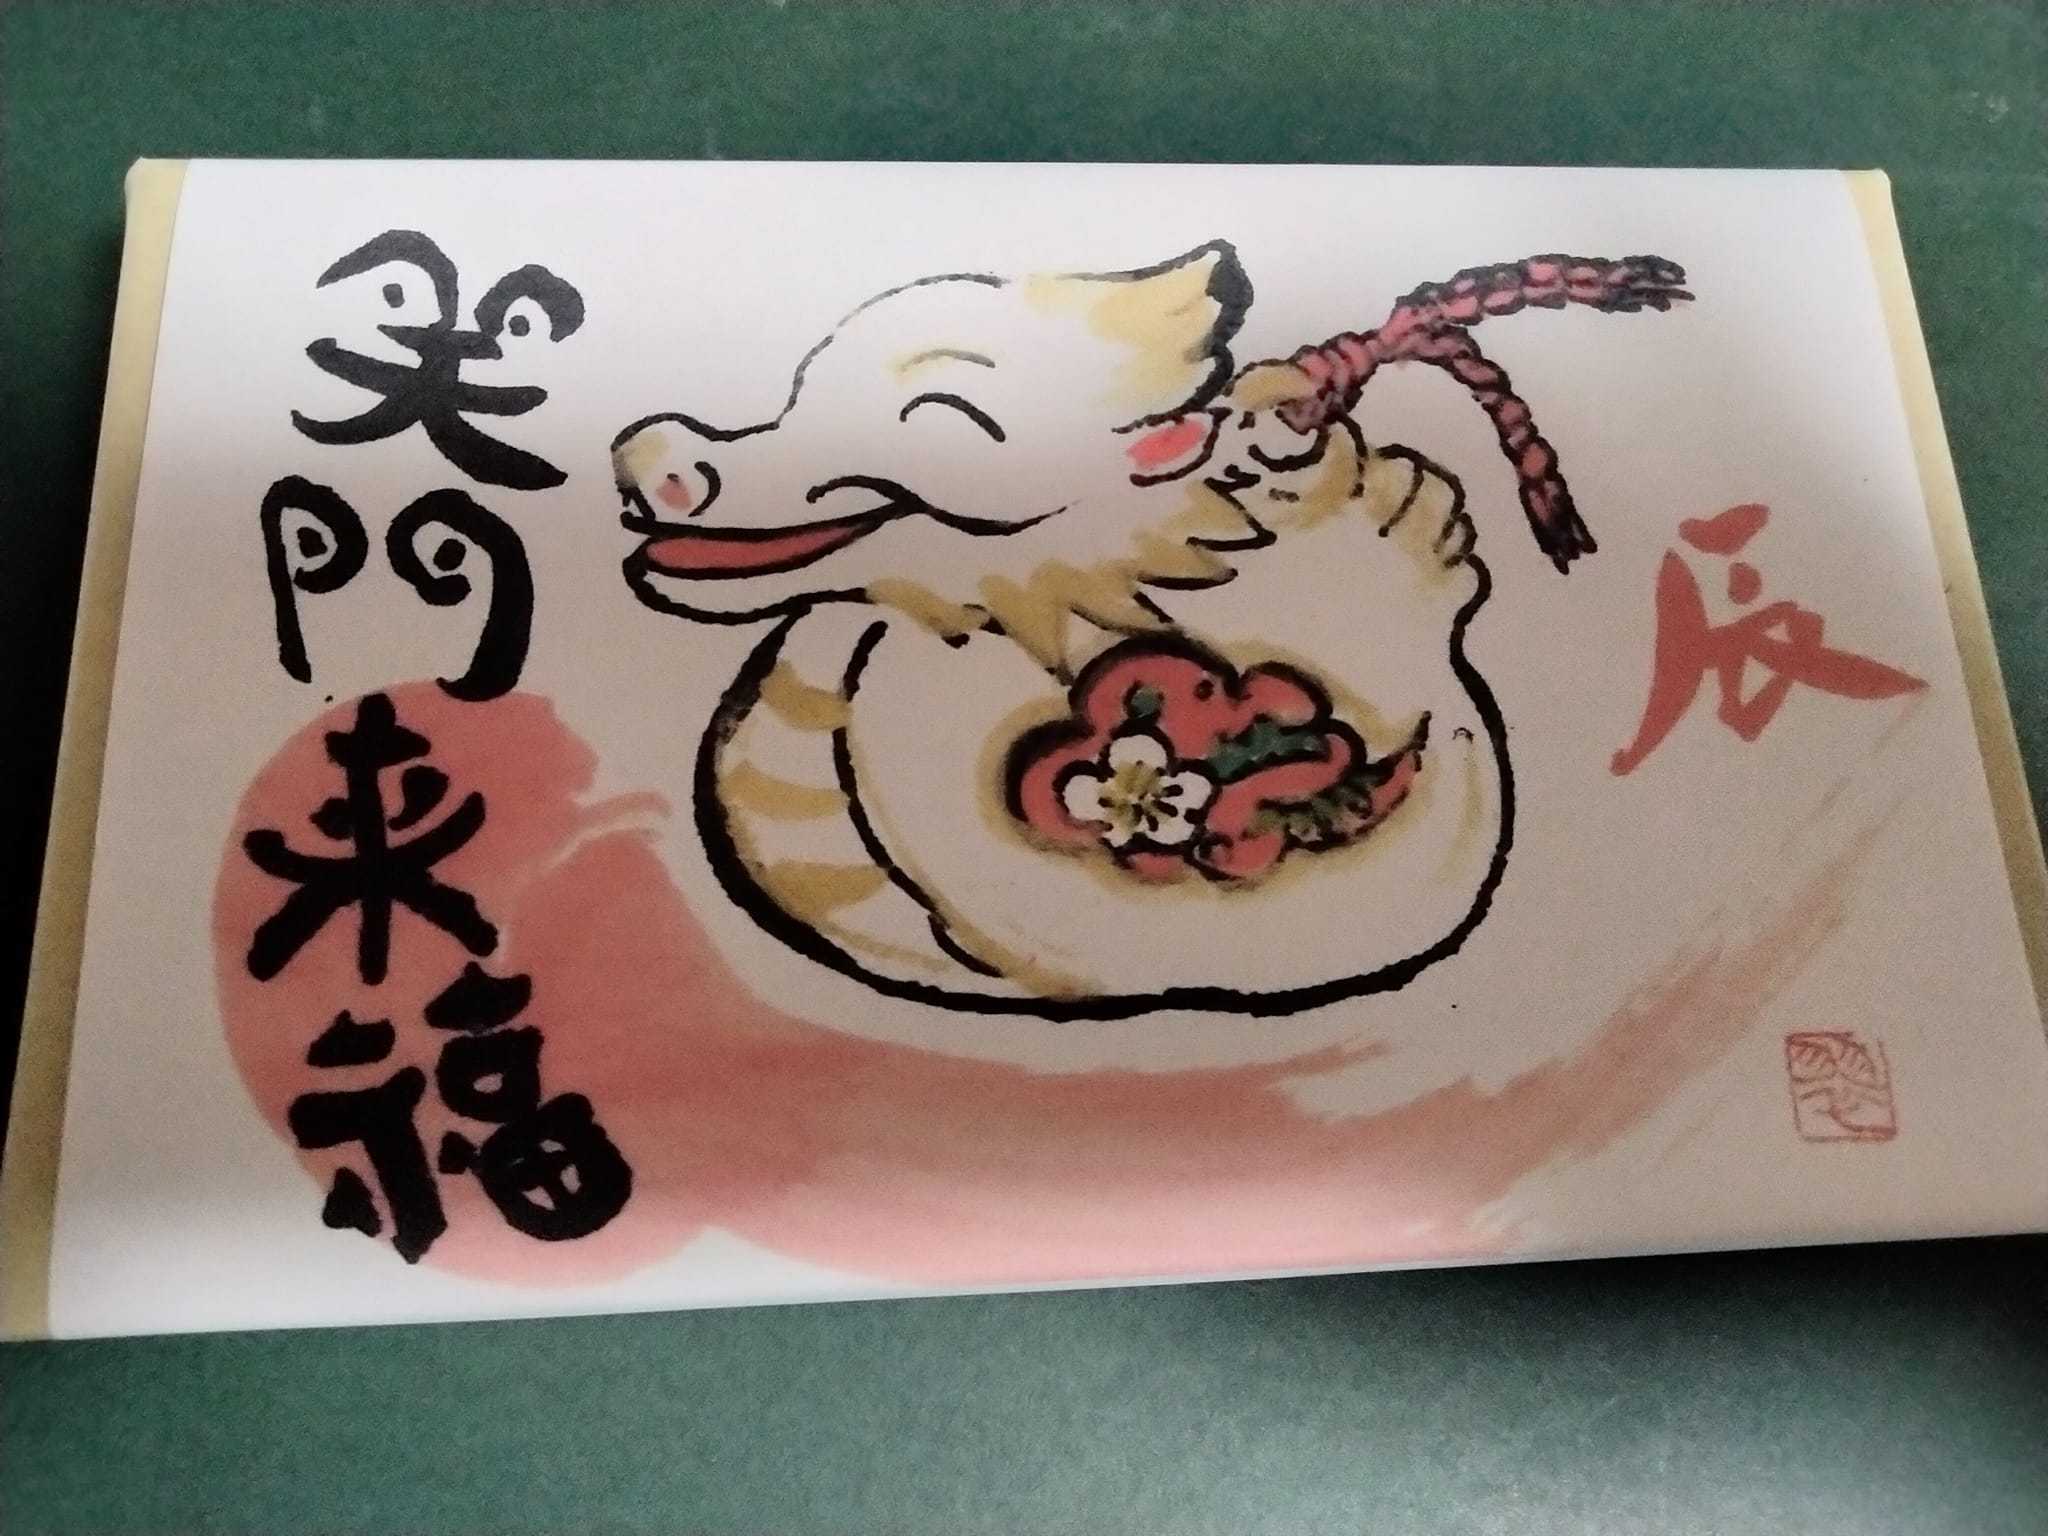 笑門来福
辰